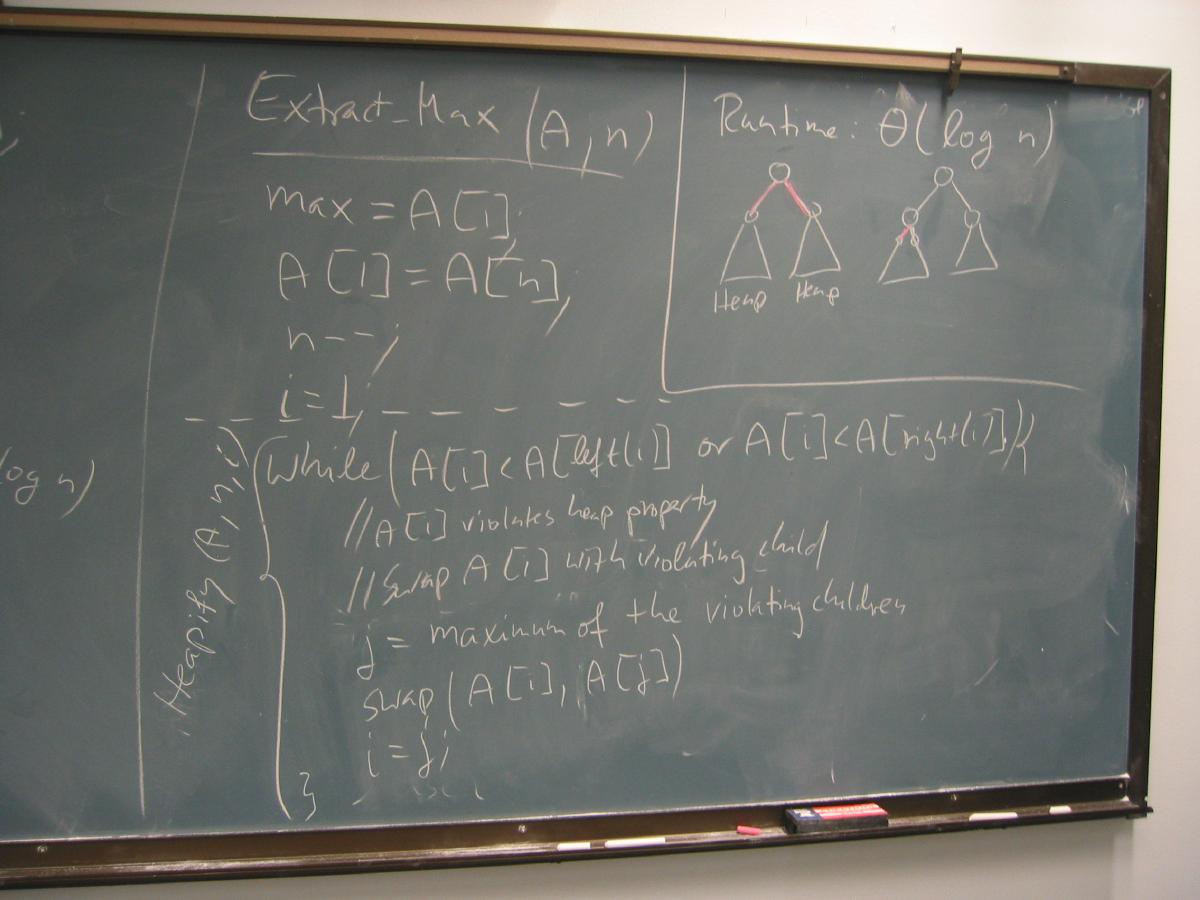 log n)
Extract-Max (A, n)
max = A[1];
A[1] = A[n];
n--;
i=1;
Heapify (A, n, i)
While (A[i]<A[left(i)] or A[i]<A[right(i)]){
//A[i] violates heap property
//Swap A[i] with violating child
j = maximum of the violating children
swap(A[i], A[j])
i=j;
}
Runtime: Θ(log n)
Heap Heap